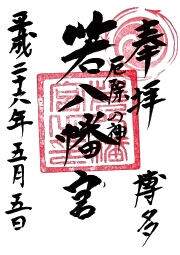 奉拝
博多
厄除の神
若八幡宮
平成二十六年五月五日